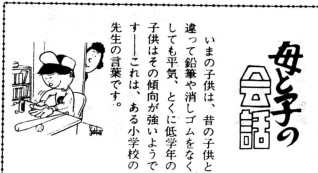 母と子の
会話
いまの子供は、昔の子供と
違って鉛筆や消しゴムをなく
しても平気、とくに低学年の
子供はその傾向が強いようで
す――これは、ある小学校の
先生の言葉です。